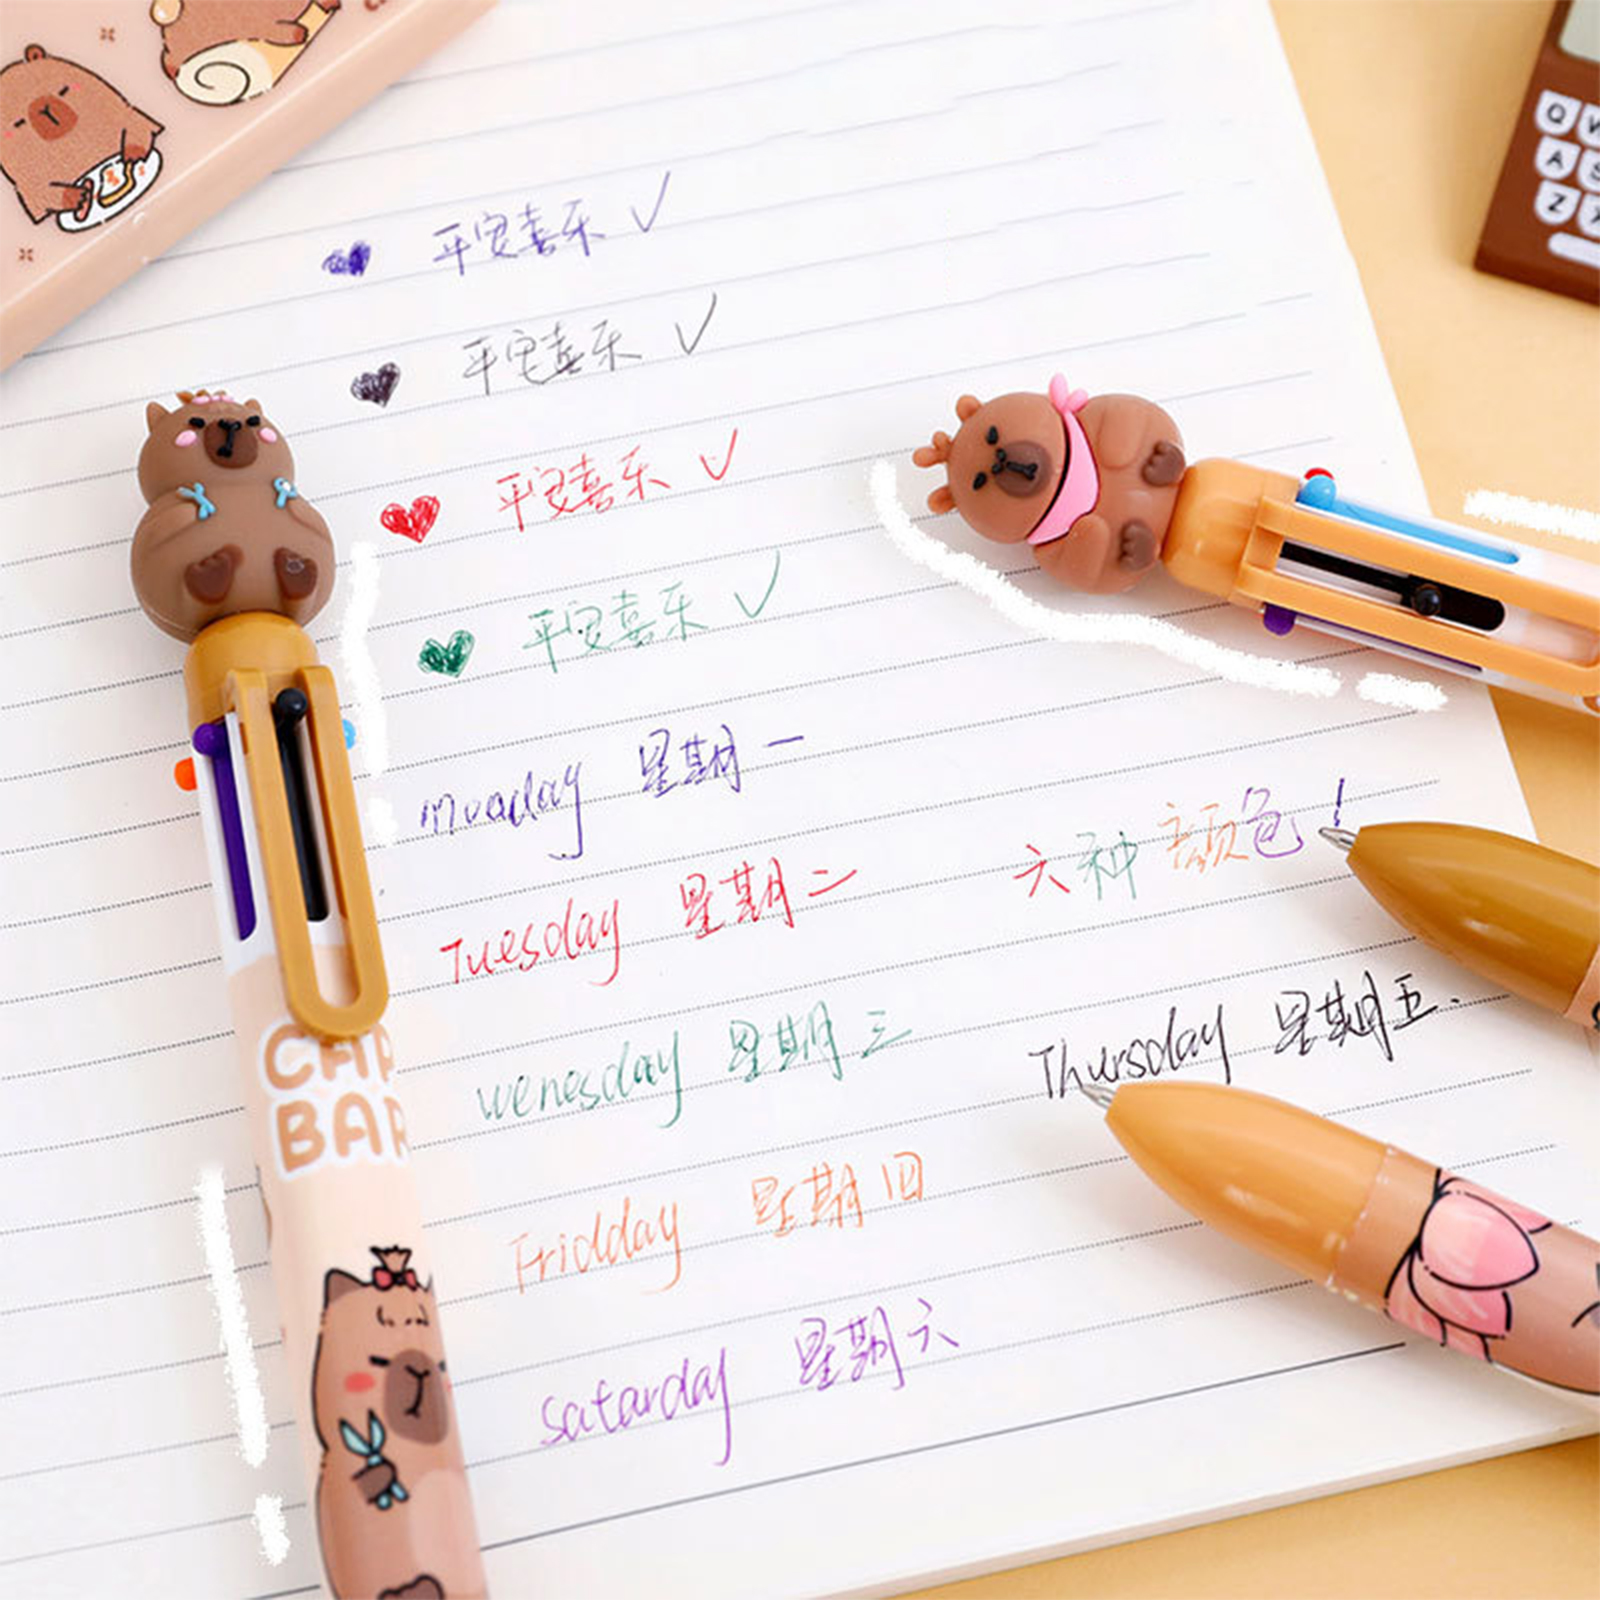 平安喜乐 ✓
平安喜乐 ✓
平安喜乐 ✓
平安喜乐 ✓
Monday 星期一
Tuesday 星期二
六种颜色!
wenesday 星期三
Thursday 星期五.
Fridday 星期四
Satarday 星期六
CAP
BAR
Q
A S
Z X